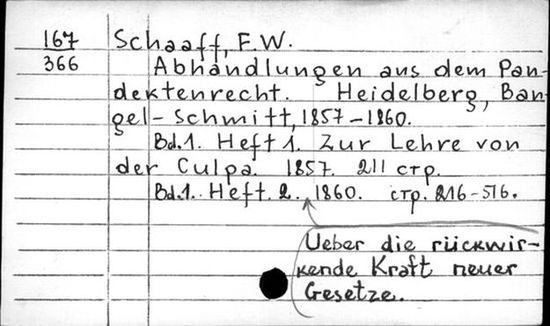 167 Schaaff, F.W.
366 Abhandlungen aus dem Pan-
dektenrecht. Heidelberg, Ban-
gel-Schmitt, 1857-1860.
Bd.1. Heft 1. Zur Lehre von
der Culpa. 1857. 211 стр.
Bd.1. Heft. 2. 1860. стр. 216-516.
Ueber die rückwir-
kende Kraft neuer
Gesetze.